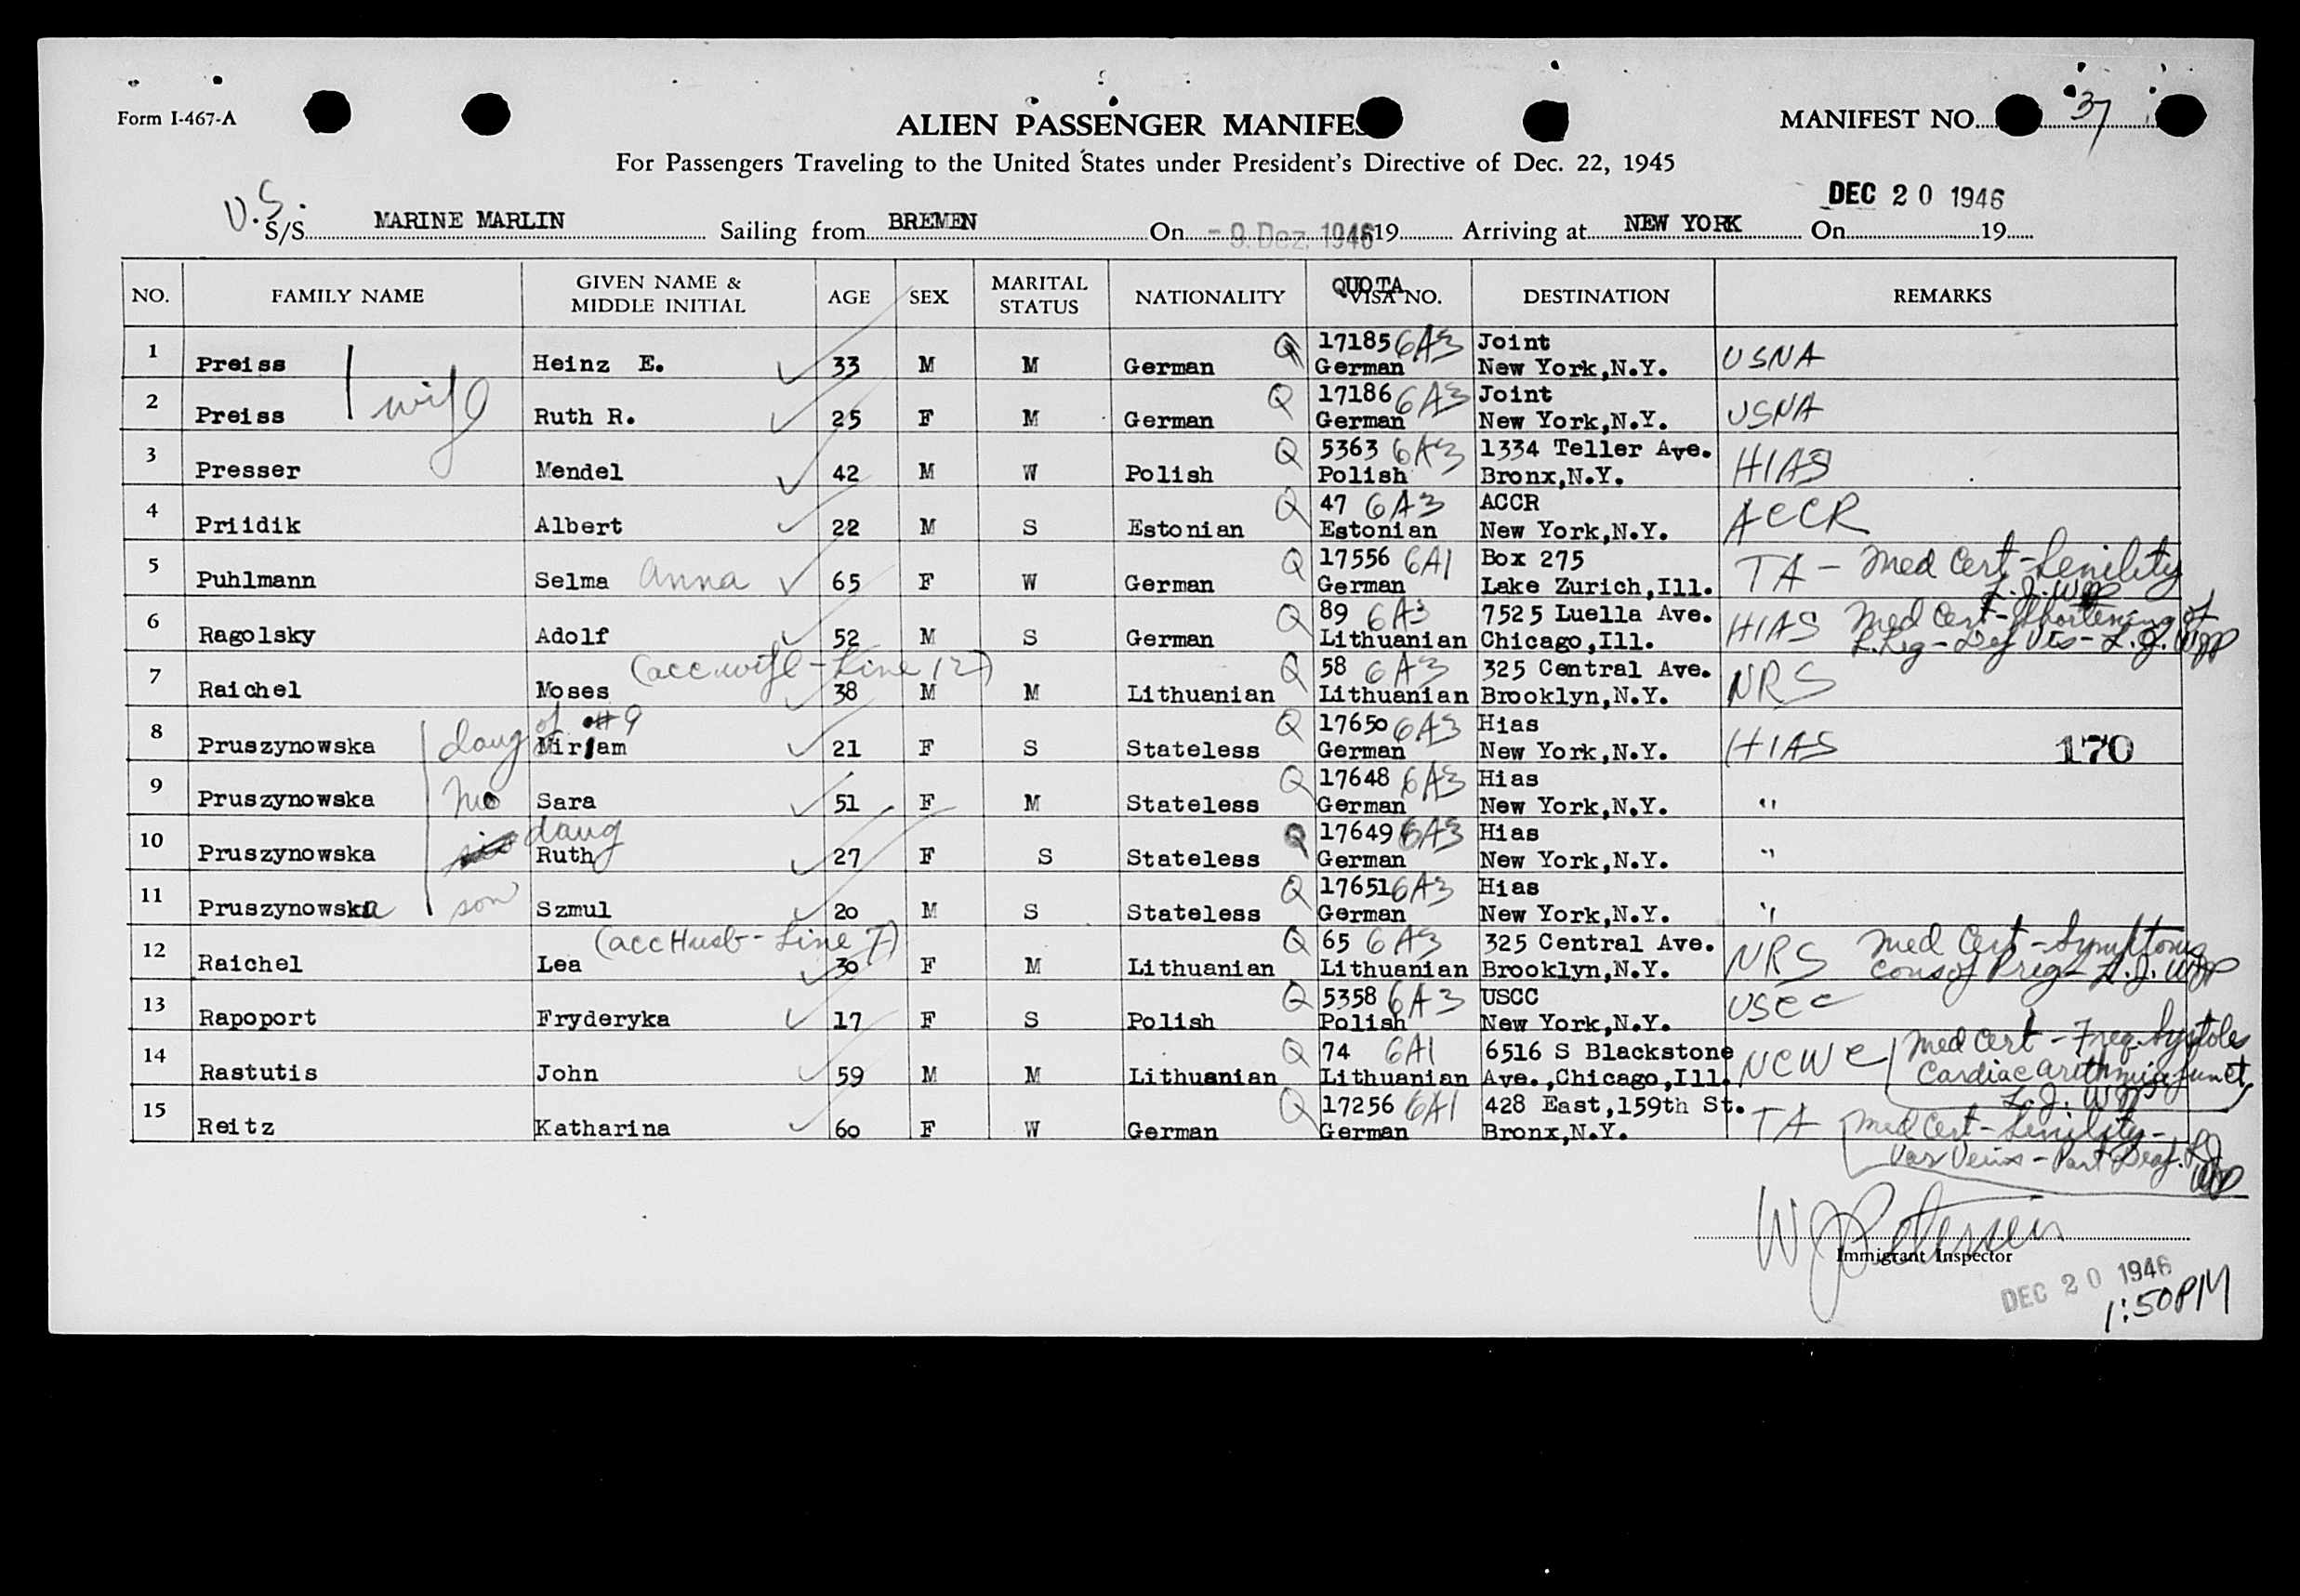 Form I-467-A
ALIEN PASSENGER MANIFES
MANIFEST NO. 37
For Passengers Traveling to the United States under President's Directive of Dec. 22, 1945
DEC 20 1946
U.S.
S/S MARINE MARLIN Sailing from BREMEN On - 9. Dez. 1946 19 Arriving at NEW YORK On 19
NO. FAMILY NAME GIVEN NAME & MIDDLE INITIAL AGE SEX MARITAL STATUS NATIONALITY QUOTA VISA NO. DESTINATION REMARKS
1 Preiss Heinz E. 33 M M German Q 17185 6A3 German Joint New York,N.Y. USNA
2 Preiss wife Ruth R. 25 F M German Q 17186 6A3 German Joint New York,N.Y. USNA
3 Presser Mendel 42 M W Polish Q 5363 6A3 Polish 1334 Teller Ave. Bronx,N.Y. HIAS
4 Priidik Albert 22 M S Estonian Q 47 6A3 Estonian ACCR New York,N.Y. ACCR
5 Puhlmann Selma Anna 65 F W German Q 17556 6A1 German Box 275 Lake Zurich,Ill. TA - Med Cert - Senility
6 Ragolsky Adolf 52 M S German Q 89 6A3 Lithuanian 7525 Luella Ave. Chicago,Ill. HIAS Med Cert - Shortening of L. Leg - Def Vis -
7 Raichel Moses (acc wife - Line 12) 38 M M Lithuanian Q 58 6A3 Lithuanian 325 Central Ave. Brooklyn,N.Y. NRS
8 Pruszynowska daug of #9 Mirjam 21 F S Stateless Q 17650 6A3 German Hias New York,N.Y. HIAS 170
9 Pruszynowska mo Sara 51 F M Stateless Q 17648 6A3 German Hias New York,N.Y. "
10 Pruszynowska daug Ruth 27 F S Stateless Q 17649 6A3 German Hias New York,N.Y. "
11 Pruszynowska son Szmul 20 M S Stateless Q 17651 6A3 German Hias New York,N.Y. "
12 Raichel Lea (acc Husb - Line 7) 30 F M Lithuanian Q 65 6A3 Lithuanian 325 Central Ave. Brooklyn,N.Y. NRS Med Cert - Symptoms cons of Preg -
13 Rapoport Fryderyka 17 F S Polish Q 5358 6A3 Polish USCC New York,N.Y. USCC
14 Rastutis John 59 M M Lithuanian Q 74 6A1 Lithuanian 6516 S Blackstone Ave.,Chicago,Ill. NCWC Med Cert - Freq. Systoles Cardiac arithmia funct.
15 Reitz Katharina 60 F W German Q 17256 6A1 German 428 East,159th St. Bronx,N.Y. TA Med Cert - Senility - Var Veins - Part Deaf.
W J Petersen
Immigrant Inspector
DEC 20 1946
1:50PM